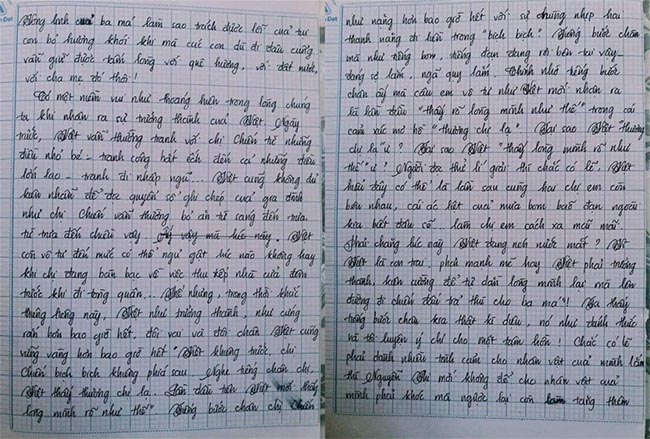 sông linh của ba má làm sao trách được lỗi của tư
con bỏ hương khói khi mà các con dù đi đâu cũng
vẫn giữ được tấm lòng với quê hương, với đất nước,
với cha mẹ đó thôi!
Có một niềm vui như thoáng hiện trong lòng chúng
ta khi nhận ra sự trưởng thành của Việt. Ngày
trước, Việt vẫn thường tranh với chị Chiến từ những
điều nhỏ bé - tranh công bắt ếch đến cả những điều
lớn lao - tranh đi nhập ngũ... Việt cũng không đủ
kiên nhẫn để đọc quyển sổ ghi chép của gia đình
như chị Chiến vẫn thường bỏ ăn từ sáng đến trưa,
từ trưa đến chiều vậy. Ấy vậy mà lúc này, Việt
còn vô tư đến mức có thể ngủ gật lúc nào không hay
khi chị đang bàn bạc về việc thu xếp nhà cửa đêm
trước khi đi tòng quân... Thế nhưng, trong thời khắc
thiêng liêng này, Việt như trưởng thành, như cứng
rắn hơn bao giờ hết, đôi vai và đôi chân Việt cũng
vững vàng hơn bao giờ hết "Việt khiêng trước, chị
Chiến bịch bịch khiêng phía sau. Nghe tiếng chân chị,
Việt thấy thương chị lạ. Lần đầu tiên Việt mới thấy
lòng mình rõ như thế". Tiếng bước chân chị Chiến
như nặng hơn bao giờ hết với sự chung nhịp hai
thanh nặng đi liền trong "bịch bịch". Tiếng bước chân
mà như tiếng bom, tiếng đạn đang rơi bên tai vậy -
đáng sợ lắm, ngã quỵ lắm. Chính nhờ tiếng bước
chân ấy mà cậu em vô tư như Việt mới nhận ra
là lần đầu "thấy rõ lòng mình như thế" trong cái
cảm xúc mơ hồ "thương chị lạ". Tại sao Việt "thương
chị lạ" ư? Tại sao Việt "thấy lòng mình rõ như
thế" ư? Người đọc thử lí giải thì chắc có lẽ, Việt
hiểu đây có thể là lần sau cùng hai chị em còn
bên nhau, cái ác liệt của mưa bom bão đạn ngoài
kia biết đâu cớ... làm chị em cách xa mãi mãi.
Phải chăng lúc này Việt đang nén nước mắt? Vì
Việt là con trai, phải mạnh mẽ hay Việt phải trưởng
thành, kiên cường để tự dặn lòng mình lại mà lên
đường đi chiến đấu trả thù cho ba má!? Ta thấy
tiếng bước chân kia thật kì diệu, nó như đánh thức
và tôi luyện ý chí cho một tâm hồn! Chắc có lẽ
phải dành nhiều tình cảm cho nhân vật của mình lắm
thì Nguyễn Thi mới không để cho nhân vật của
mình phải khóc mà ngược lại còn làm tăng thêm